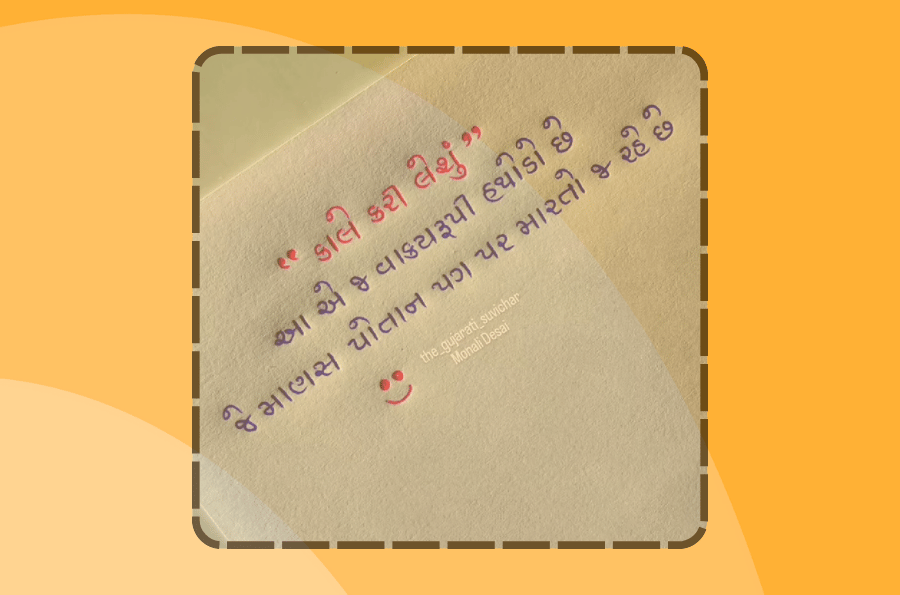 “ કાલે કરી લેશું ”
આ એ જ વાક્યરૂપી હથોડો છે
જે માણસ પોતાન પગ પર મારતો જ રહે છે
the_gujarati_suvichar
Monali Desai